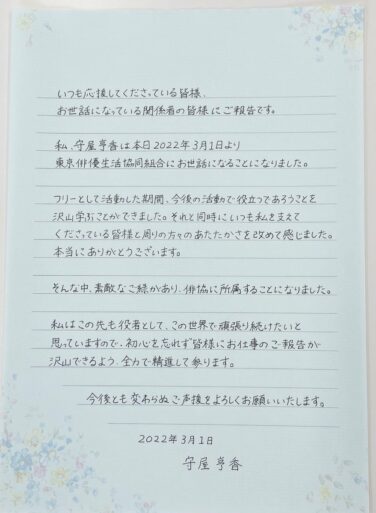 いつも応援してくださっている皆様、
お世話になっている関係者の皆様にご報告です。
私、守屋亨香は本日2022年3月1日より
東京俳優生活協同組合にお世話になることになりました。
フリーとして活動した期間、今後の活動で役立つであろうことを
沢山学ぶことができました。それと同時にいつも私を支えて
くださっている皆様と周りの方々のあたたかさを改めて感じました。
本当にありがとうございます。
そんな中、素敵なご縁があり、俳協に所属することになりました。
私はこの先も役者として、この世界で頑張り続けたいと
思っていますので、初心を忘れず皆様にお仕事のご報告が
沢山できるよう、全力で精進して参ります。
今後とも変わらぬご声援をよろしくお願いいたします。
2022年3月1日
守屋亨香